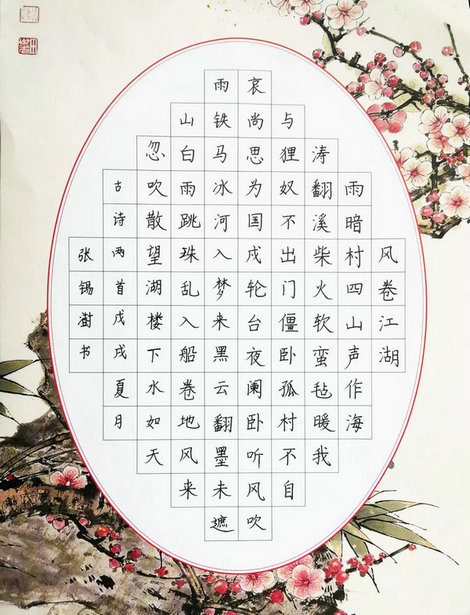 风卷江湖
雨暗村四山声作海
涛翻溪柴火软蛮毡暖我
与狸奴不出门僵卧孤村不自
哀尚思为国戍轮台夜阑卧听风吹
雨铁马冰河入梦来黑云翻墨未遮
山白雨跳珠乱入船卷地风来
忽吹散望湖楼下水如天
古诗两首戊戌夏月
张锡澍书